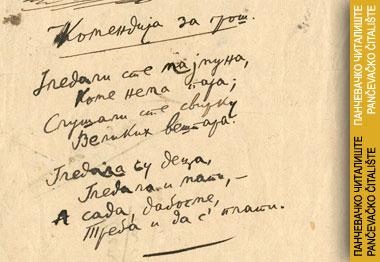 Комендија за грош.
Гледали сте мајмуна,
Коме нема пара;
Слушали сте свирку
Великих вештара.
Гледала су деца,
Гледала и мати, –
А сада, дабогме,
Треба и да с' плати.
ПАНЧЕВАЧКО ЧИТАЛИШТЕ
PANČEVAČKO ČITALIŠTE
ПАНЧЕВАЧКО ЧИТАЛИШТЕ
PANČEVAČKO ČITALIŠTE